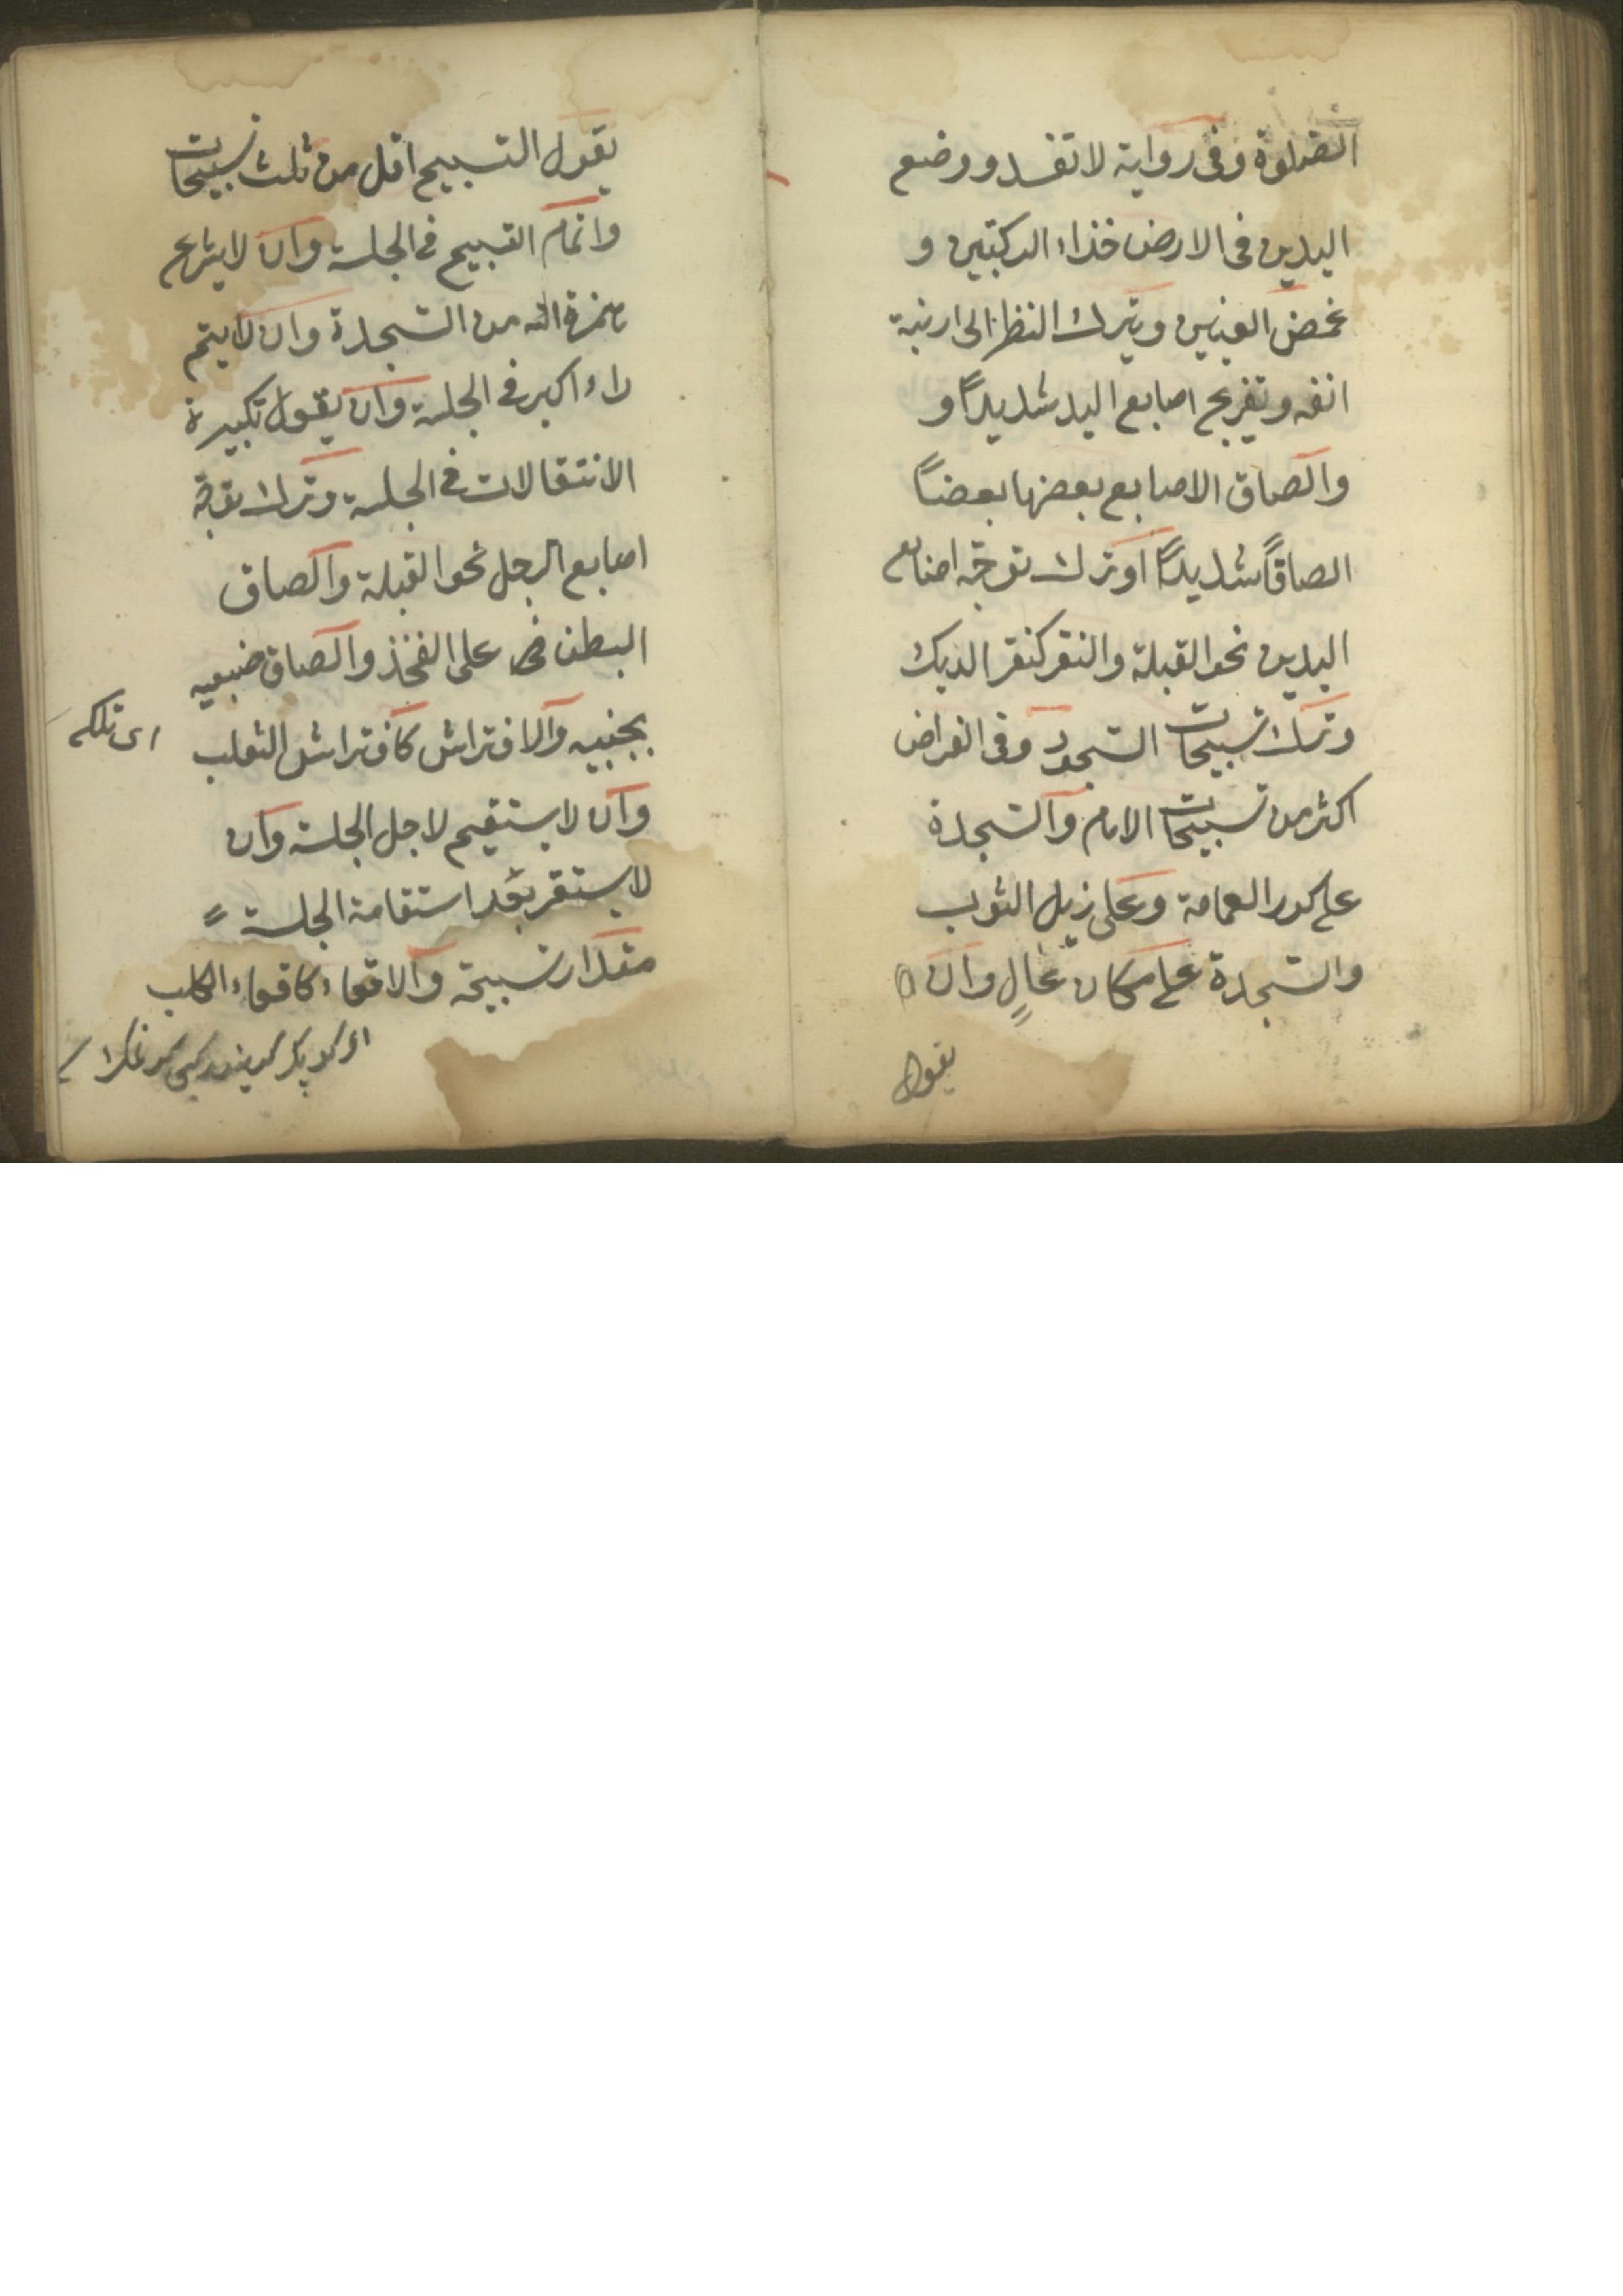 الصلوة وفى رواية لا تفسد ووضع
اليدين فى الارض حذاء الركبتين و
غمض العينين وبترك النظر الى ارنبة
انفه وتفريج اصابع اليد شديدًا و
والصاق الاصابع بعضها بعضاً
الصاقاً شديدًا وترك توجّه اصابع
اليدين نحو القبلة والنقر كنقر الديك
وترك تسبيحات السّجود وفى الفرائض
اكثر من تسبيحات الامام والسّجدة
على كور العمامة وعلى زيل الثوب
والسّجدة على مكان عالٍ وان
يقول
يقول التسبيح اقل من ثلث تسبيحات
واتمام التسبيح فى الجلسة وان لا يشرع
همزة الله من السّجدة وان لا يتم
راء اكبر فى الجلسة وان يقول تكبيرة
الانتقالات فى الجلسة وترك توجّه
اصابع الرجل نحو القبلة والصاق
البطن على الفخذ والصاق ضبعيه
بجنبيه والافتراش كافتراش الثعلب
اى تلكى
وان لا يستقيم لاجل الجلسة وان
لا يستقر بعد استقامة الجلسة
مقدار تسبيحة والاقعاء كاقعاء الكلب